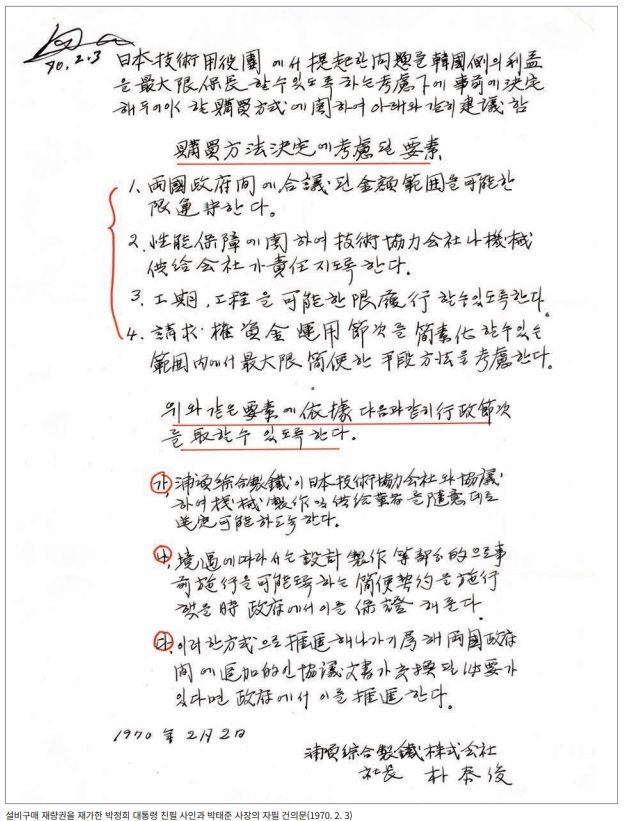 70. 2. 3
日本技術用役團에서 提起한 问題를 韓國側의 利益
을 最大限 保長 할수있도록 하는 考慮下에 事前에 決定
해 두어야 할 購買方式에 関하여 아래와 같이 建議 함
購買方法決定에 考慮될 要素
1. 両國政府间에 合議된 金額範囲을 可能한
限 遵守한다.
2. 性能保障에 関하여 技術協力会社나 機械
供给会社가 責任지도록 한다.
3. 工期, 工程을 可能한限 履行 할수있도록한다.
4. 請求権資金 運用節次를 简素化 할수있는
範囲内에서 最大限 简便한 手段方法을 考慮한다.
위와 같은 要素에 依據 다음과같이 行政節次
를 取할수 있도록 한다.
가. 浦項綜合製鐵이 日本技術協力会社와 協議
하여 機械製作 및 供给業者를 随意대로
選定可能하도록 한다.
나. 境遇에 따라서는 設計 製作 等 部分的으로 事
前施行을 可能토록 하는 简便契約을 施行
했을 時 政府에서 이를 保證 해준다.
다. 이러한 方式으로 推進해나가기 為해 両國政府
间에 追加的인 協議文書가 交換될 必要가
있다면 政府에서 이를 推進한다.
1970 年 2月 2日
浦項綜合製鐵株式会社
社長 朴泰俊
설비구매 재량권을 재가한 박정희 대통령 친필 사인과 박태준 사장의 자필 건의문(1970. 2. 3)